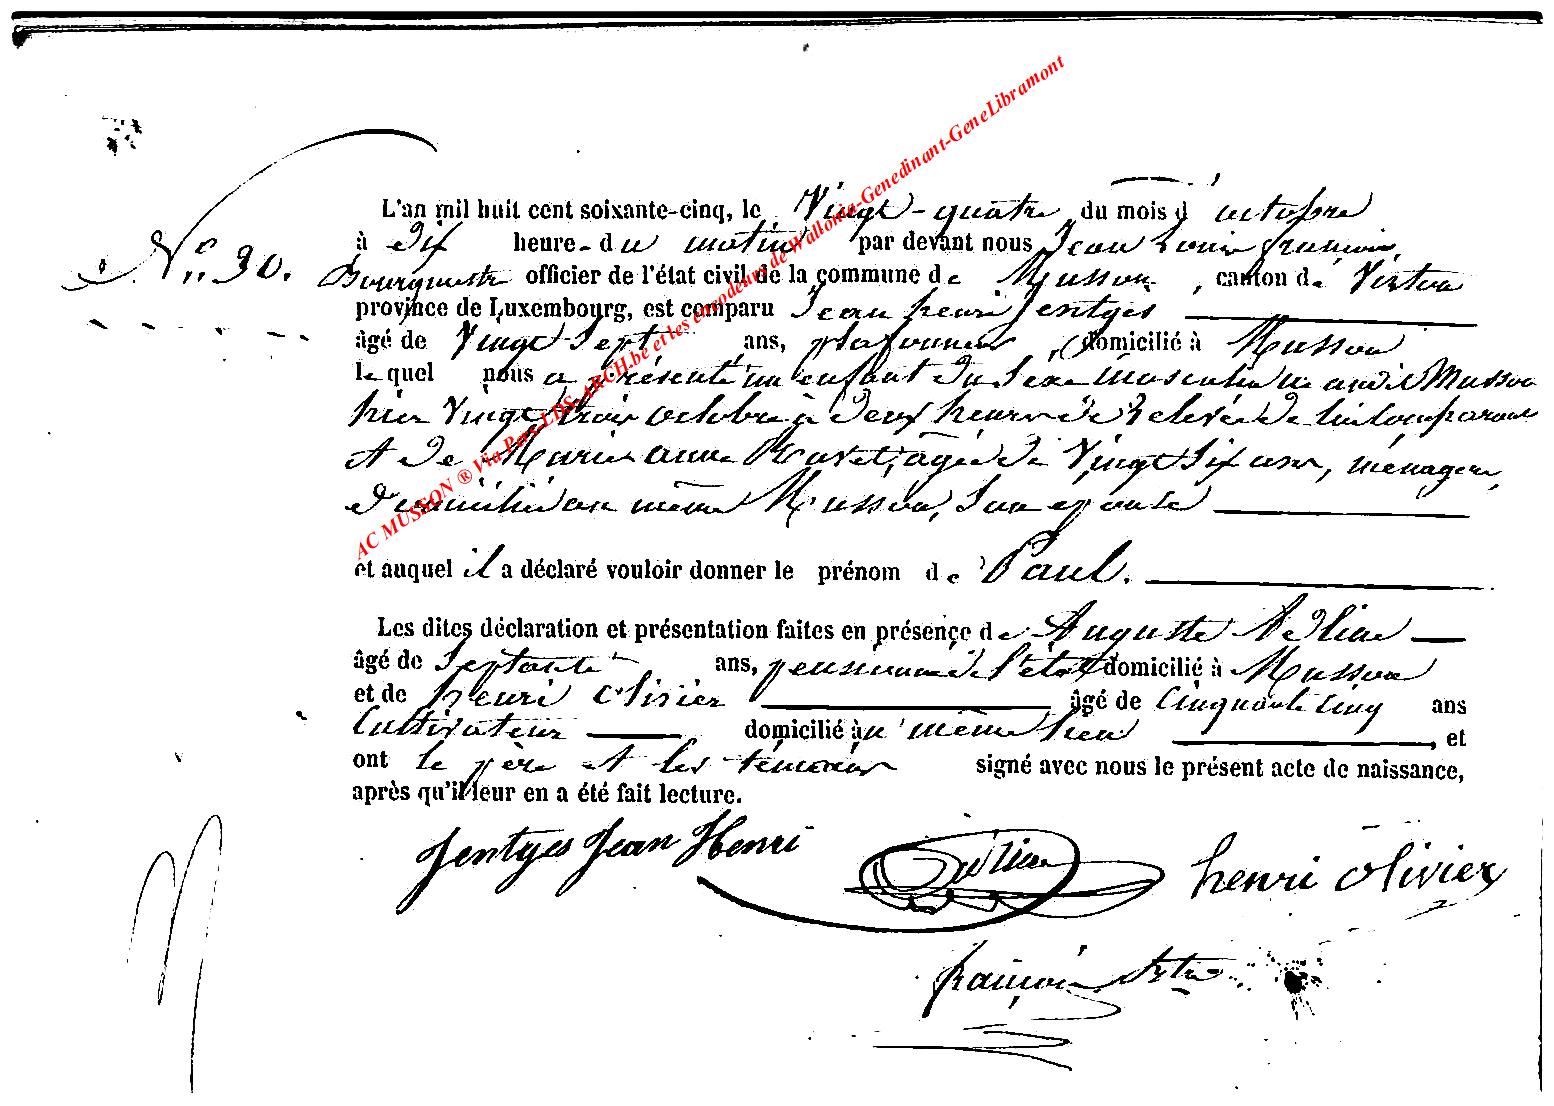 AC MUSSON ® Via Par LDS-ARCH.be et les encodeurs de Wallonia-Genedinant-GeneLibramont
N° 30.
L'an mil huit cent soixante-cinq, le Vingt-quatre du mois d'octobre
à dix heure-du matin par devant nous Jean Louis françois,
Bourgmestre officier de l'état civil de la commune de Musson, canton de Virton
province de Luxembourg, est comparu Jean henri Jentges
âgé de Vingt Sept ans, plafonneur, domicilié à Musson
lequel nous a présenté un enfant du Sexe masculin né audit Musson
hier Vingt trois octobre à deux heures de relevée de lui Comparant
et de Marie anne âgée de Vingt Six ans, ménagère,
domiciliée au même Musson, Son epouse
et auquel il a déclaré vouloir donner le prénom de Paul.
Les dites déclaration et présentation faites en présence de Auguste
âgé de Septante ans, pensionné de l'état domicilié à Musson
et de henri olivier âgé de Cinquante Cinq ans
Cultivateur domicilié au même lieu, et
ont le père et les témoins signé avec nous le présent acte de naissance,
après qu'il leur en a été fait lecture.
Jentges Jean Henri
henri olivier
françois